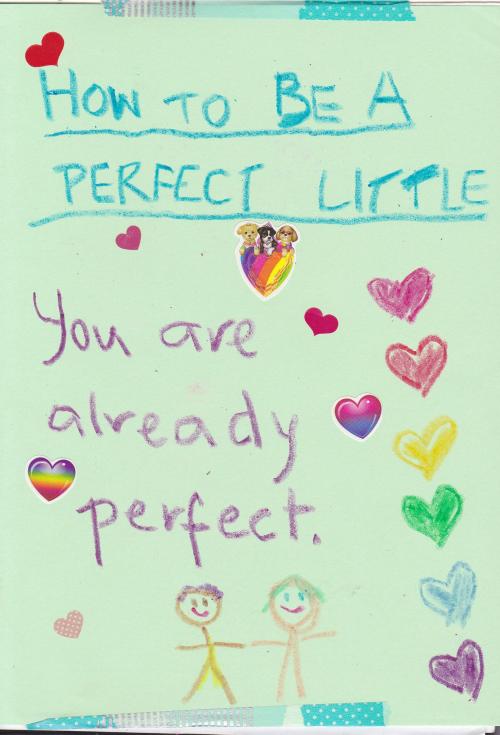 HOW TO BE A
PERFECT LITTLE
You are
already
perfect.